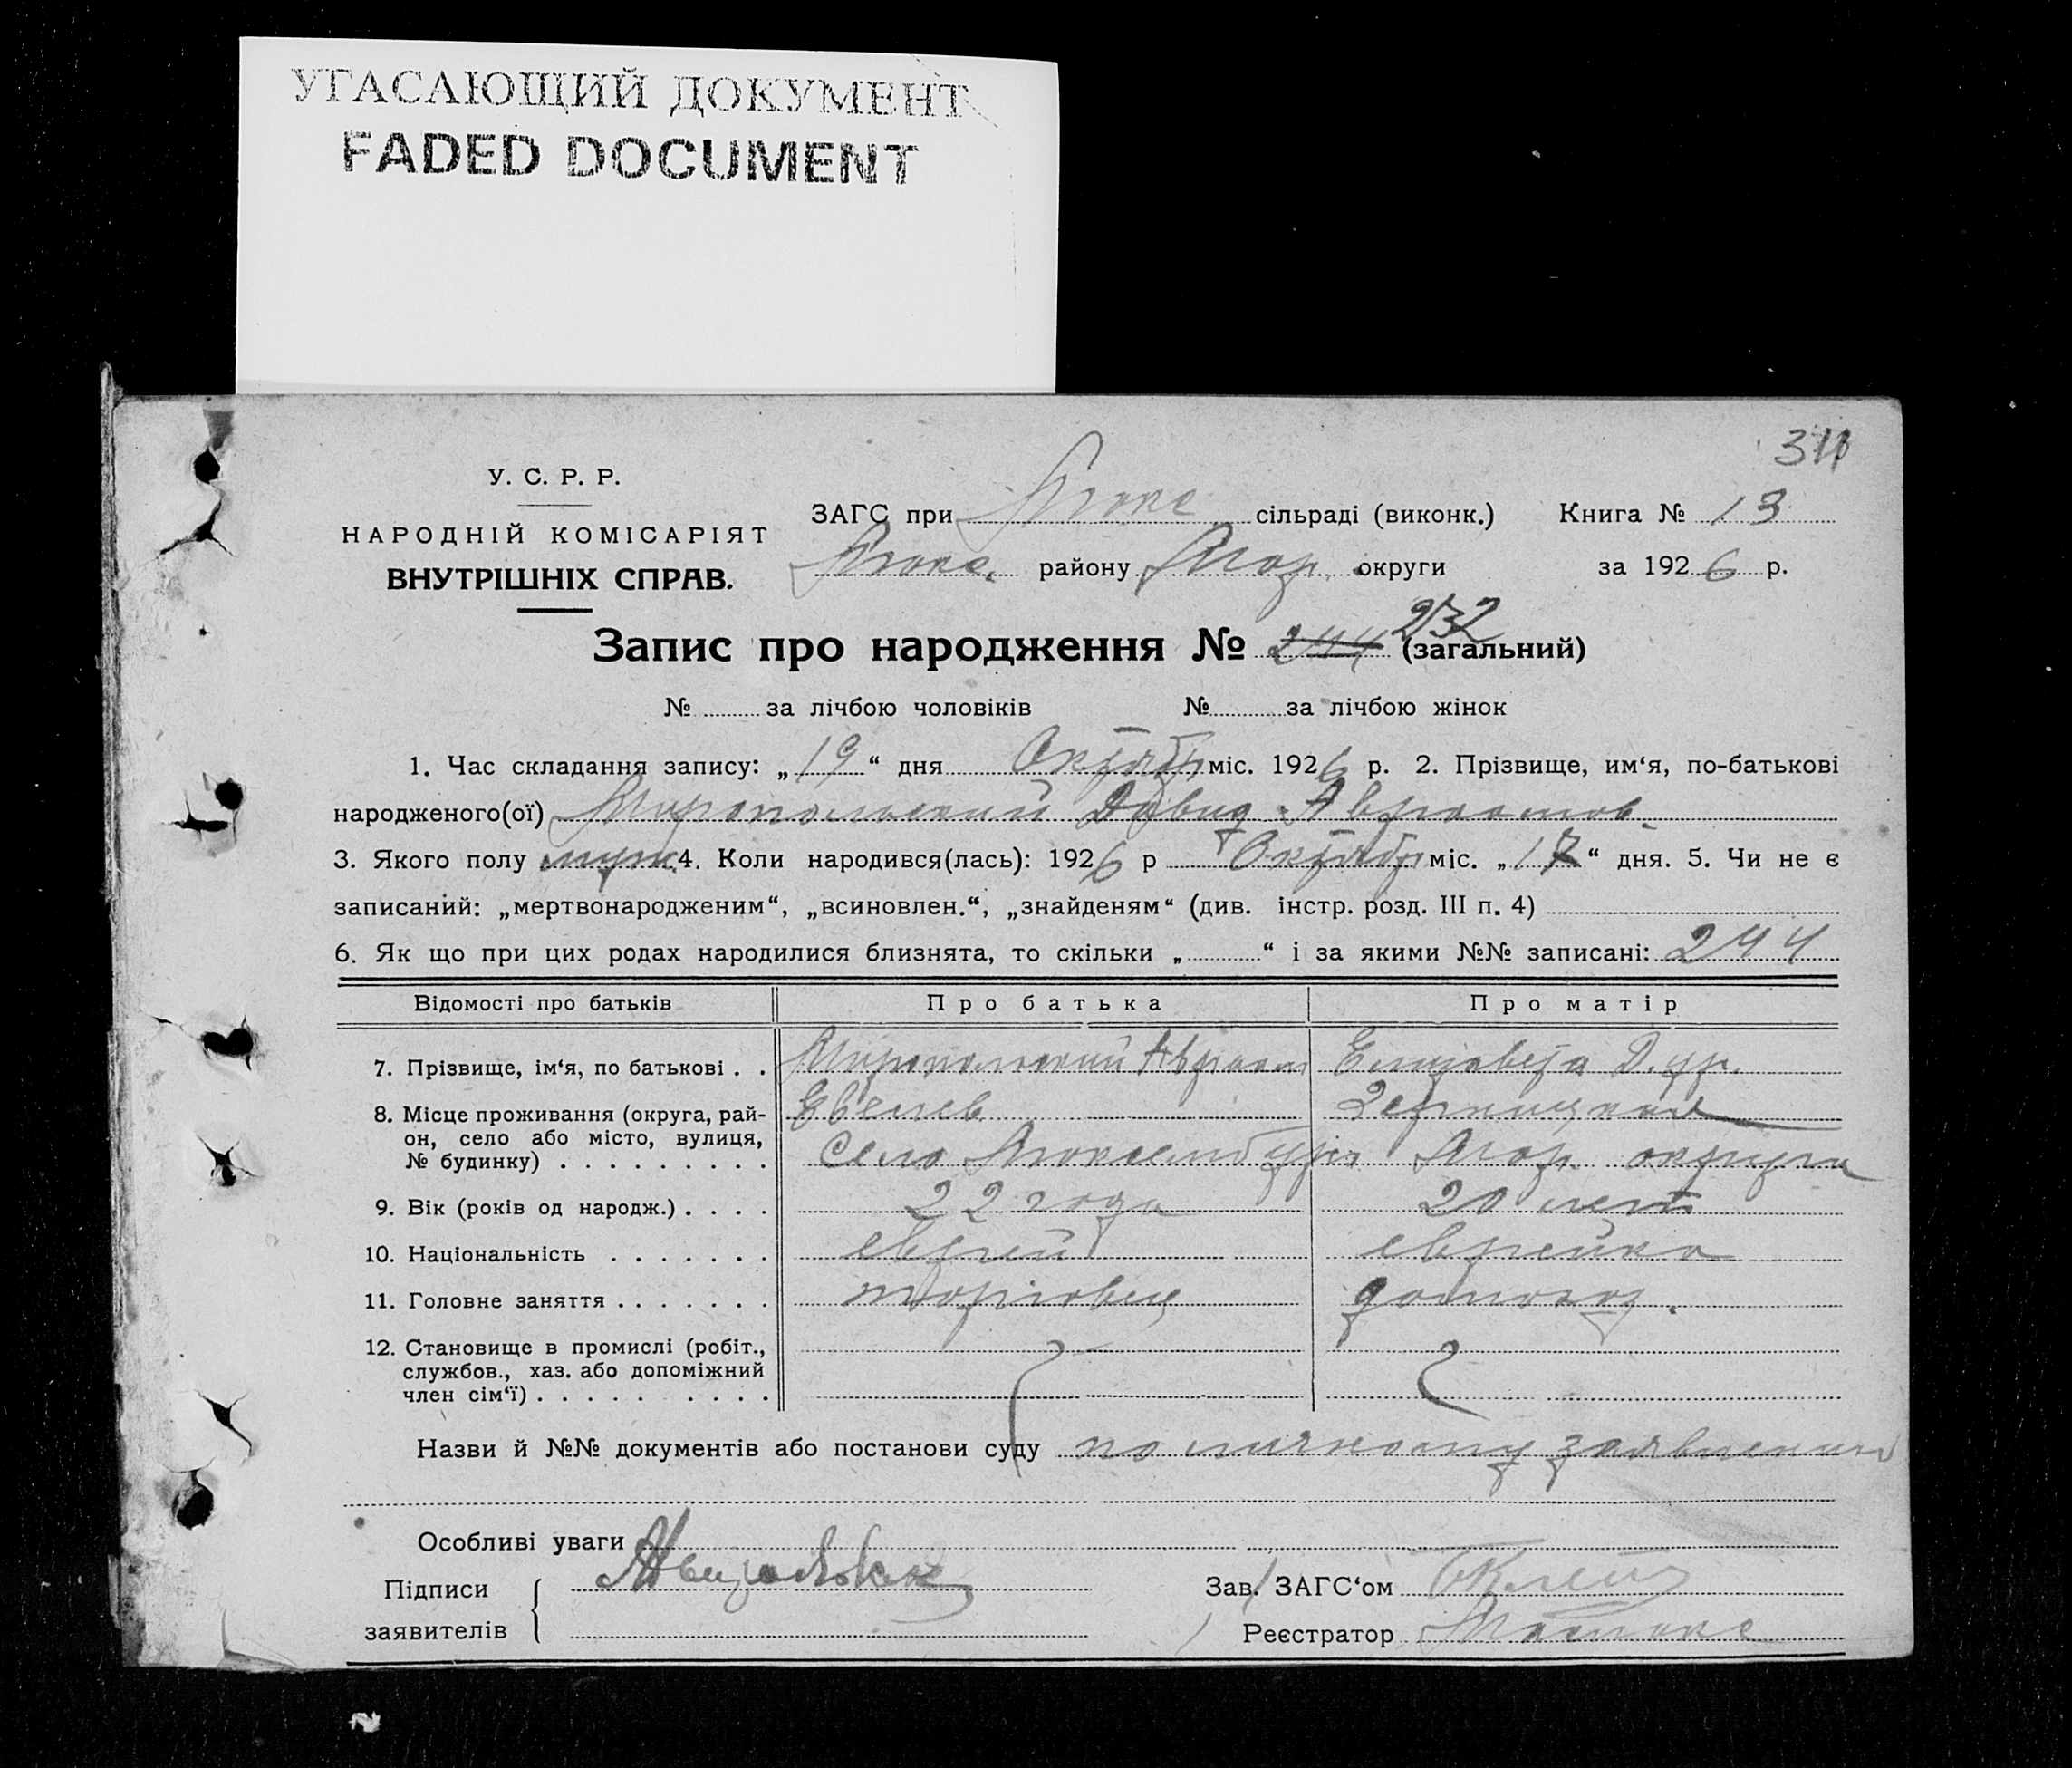 УГАСАЮЩИЙ ДОКУМЕНТ
FADED DOCUMENT
У. С. Р. Р.
НАРОДНІЙ КОМІСАРІЯТ
ВНУТРІШНІХ СПРАВ.
ЗАГС при Люкс сільраді (виконк.) Книга № 13
Люкс. району Мар. округи за 1926 р.
232
Запис про народження № 244 (загальний)
№ за лічбою чоловіків № за лічбою жінок
1. Час складання запису: „19“ дня Октября міс. 1926 р. 2. Прізвище, им‘я, по-батькові
народженого(ої) Миропольский Давид Авраамов.
3. Якого полу муж. 4. Коли народився(лась): 1926 р Октября міс. „17“ дня. 5. Чи не є
записаний: „мертвонародженим“, „всиновлен.“, „знайденям“ (див. інстр. розд. III п. 4)
6. Як що при цих родах народилися близнята, то скільки „ “ і за якими №№ записані: 244
Відомості про батьків Про батька Про матір
7. Прізвище, ім‘я, по батькові . . Миропольский Авраам Елизавета
8. Місце проживання (округа, рай-
он, село або місто, вулиця,
№ будинку) . . . . . . . . . Село Люксембург Мар. округа
9. Вік (років од народж.) . . . . 22 года 20 лет
10. Національність . . . . . . . еврей еврейка
11. Головне заняття . . . . . . . торговец домохоз.
12. Становище в промислі (робіт.,
службов., хаз. або допоміжний
член сім‘ї) . . . . . . . . . .
Назви й №№ документів або постанови суду по личному заявлению
Особливі уваги
Підписи
заявителів
Зав. ЗАГС‘ом
Реєстратор